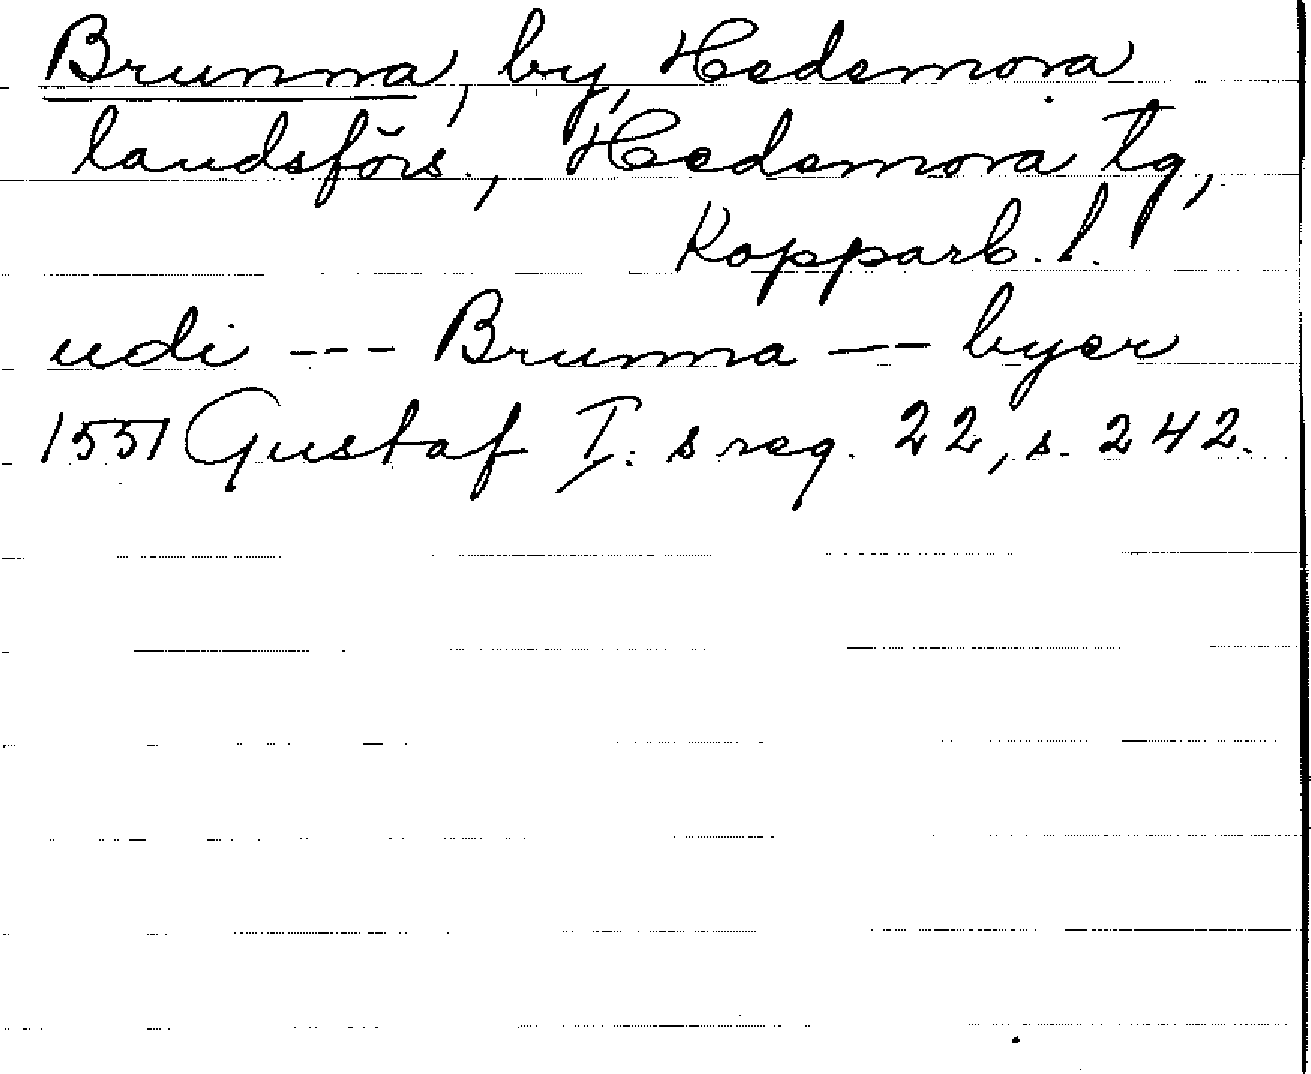 Brunna, by, Hedemora
landsförs., Hedemora tg,
Kopparb. l.
udi --- Brunna -- byer
1551 Gustaf I:s reg. 22, s. 242.